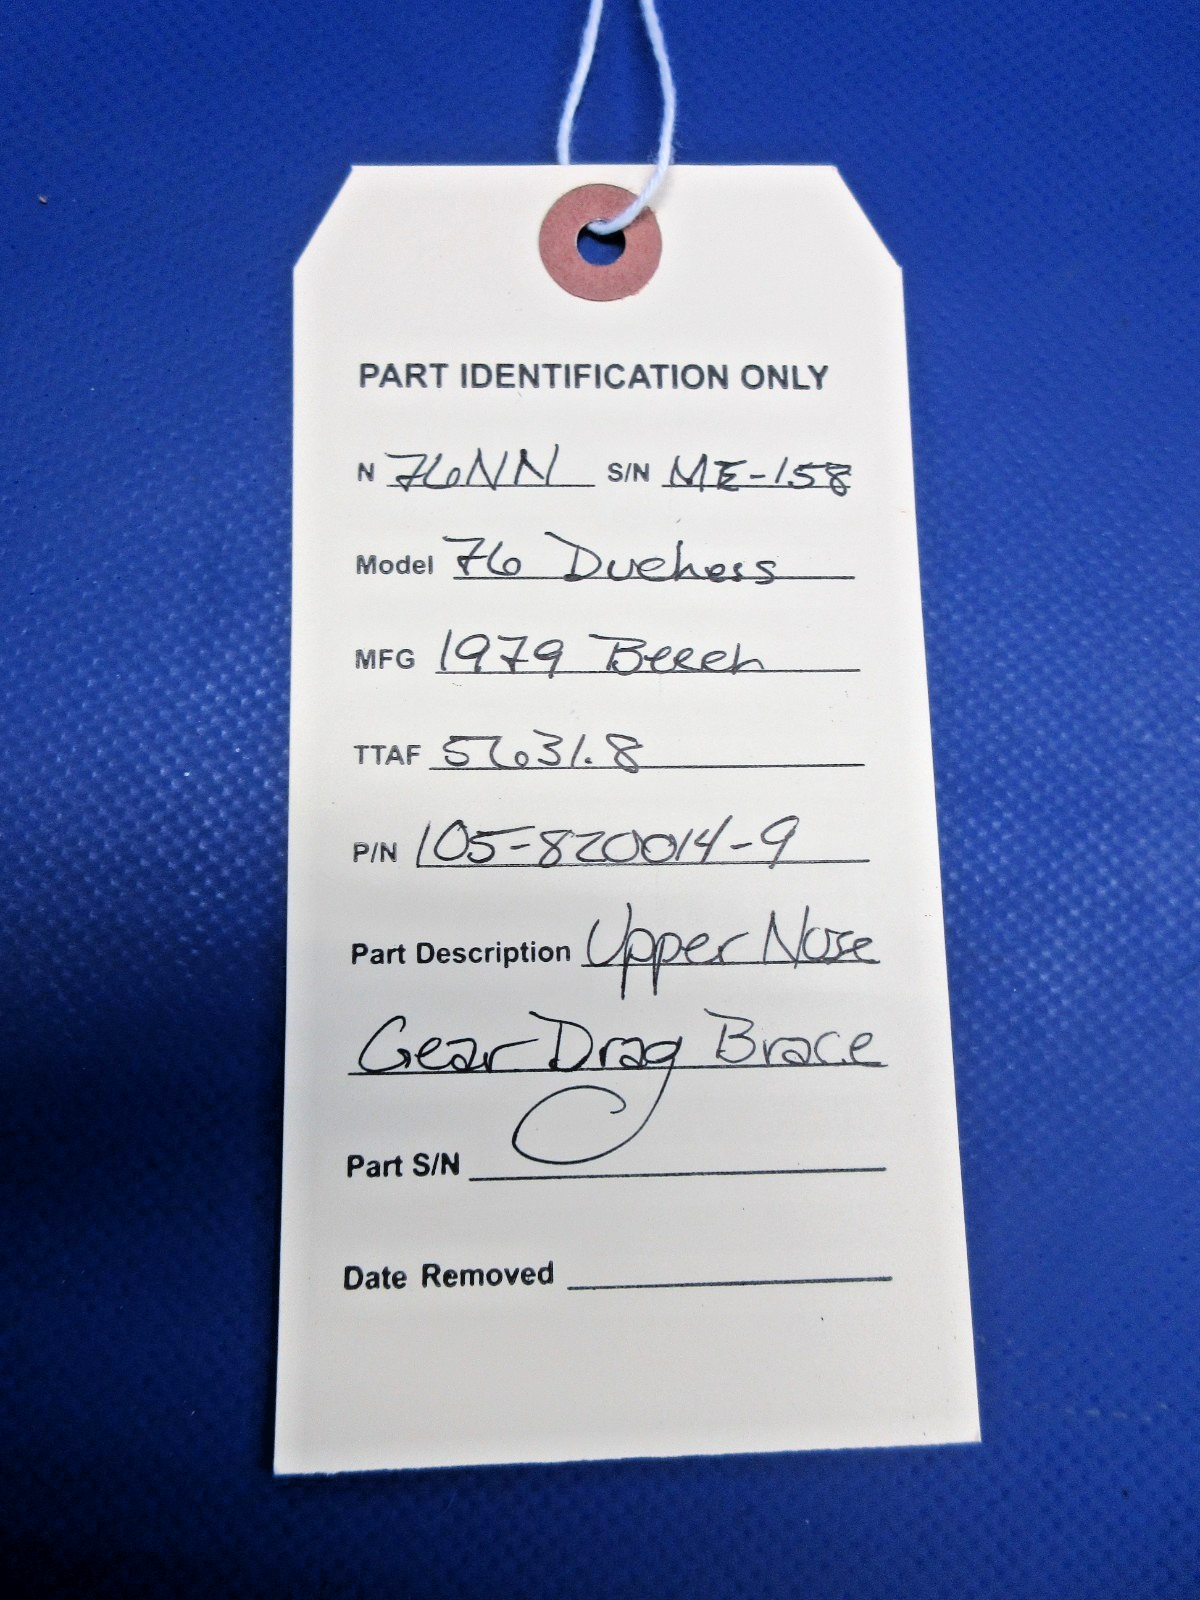 PART IDENTIFICATION ONLY
N 76NN S/N ME-158
Model 76 Duchess
MFG 1979 Beech
TTAF 5631.8
P/N 105-820014-9
Part Description Upper Nose
Gear Drag Brace
Part S/N
Date Removed